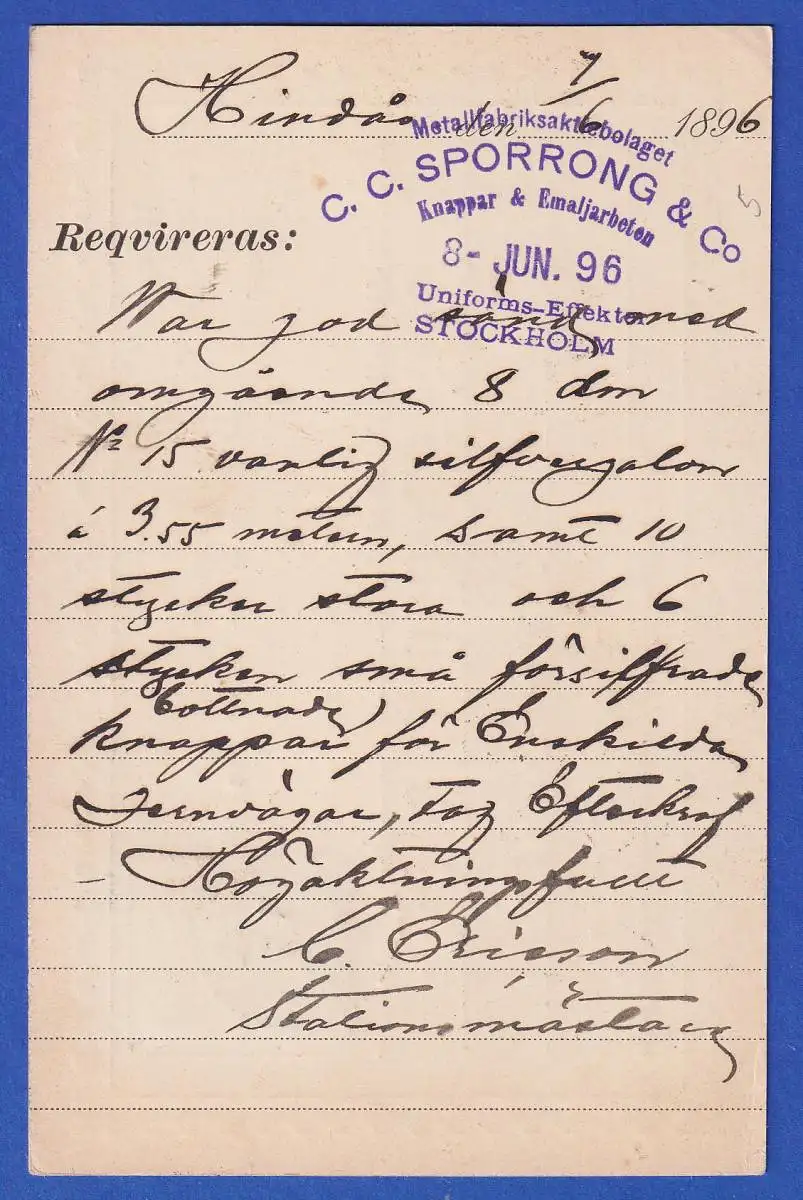 Hindås den 7/6 1896
Metallfabriksaktiebolaget
C. C. SPORRONG & Co
Knappar & Emaljarbeten
8 - JUN. 96
Uniforms-Effekter
STOCKHOLM
5
Reqvireras:
War god sänd med
omgående 8 dm
No 15 vanlig silfvergalon
à 3.55 metern, samt 10
stycken stora och 6
stycken små försilfrade
(bottnade)
knappar för Enskilda
Jernvägar, tag Efterkraf
Högaktningsfullt
C. Ericson
Stationsmästare